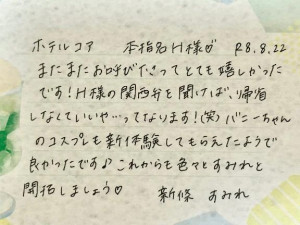 ホテルコア 本指名H様♡ R8.8.22
またまたお呼び下さってとても嬉しかった
です！H様の関西弁を聞けば、帰省
しなくていいや…ってなります！(笑)バニーちゃん
のコスプレも新体験してもらえたようで
良かったです♪これからも色々とすみれと
開拓しましょう♡ 新條 すみれ